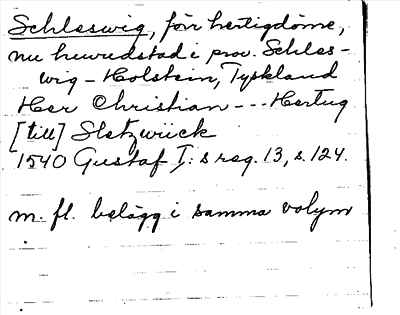 Schleswig, förr hertigdöme,
nu huvudstad i prov. Schles-
wig-Holstein, Tyskland
Her Christian --- Hertug
[till] Sletzwiick
1540 Gustaf I:s reg. 13, s. 124.
m. fl. belägg i samma volym